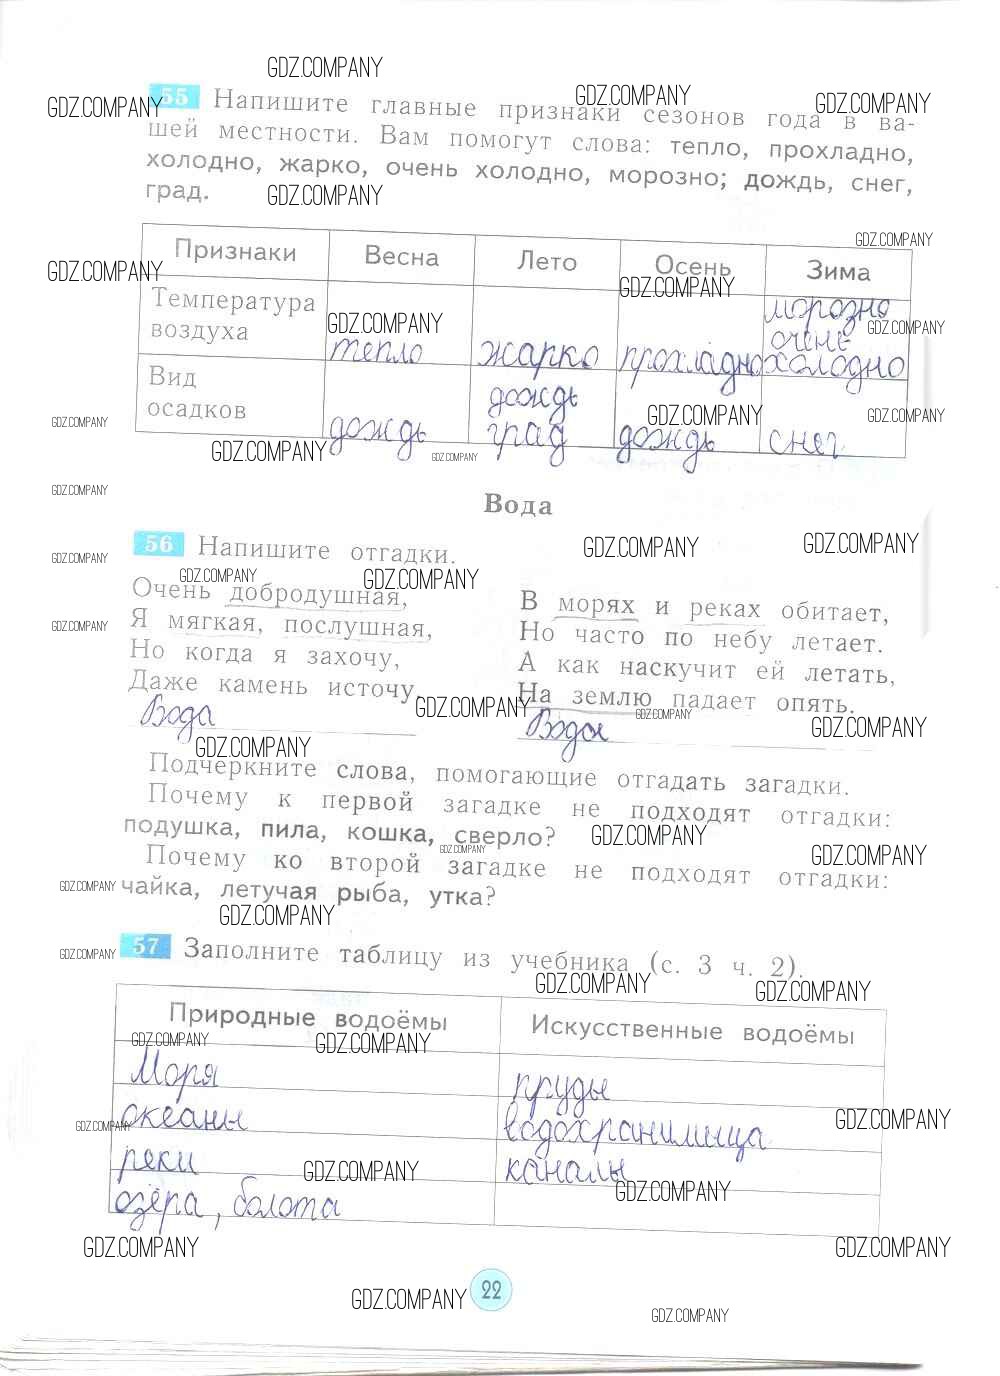 GDZ.COMPANY
55 Напишите главные признаки сезонов года в ва-
шей местности. Вам помогут слова: тепло, прохладно,
холодно, жарко, очень холодно, морозно; дождь, снег,
град.
Признаки Весна Лето Осень Зима
Температура воздуха тепло жарко прохладно морозно очень холодно
Вид осадков дождь дождь град дождь снег
Вода
56 Напишите отгадки.
Очень добродушная,
Я мягкая, послушная,
Но когда я захочу,
Даже камень источу.
Вода
В морях и реках обитает,
Но часто по небу летает.
А как наскучит ей летать,
На землю падает опять.
Вода
Подчеркните слова, помогающие отгадать загадки.
Почему к первой загадке не подходят отгадки:
подушка, пила, кошка, сверло?
Почему ко второй загадке не подходят отгадки:
чайка, летучая рыба, утка?
57 Заполните таблицу из учебника (с. 3 ч. 2).
Природные водоёмы Искусственные водоёмы
Моря пруды
океаны водохранилища
реки каналы
озёра, болота
22
GDZ.COMPANY